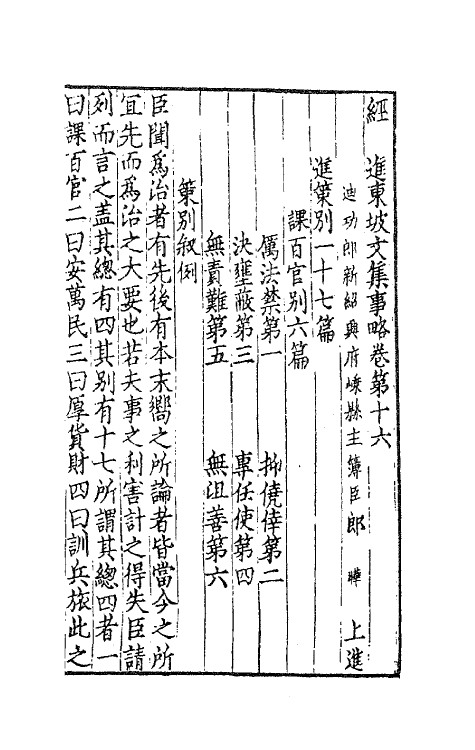 經　進東坡文集事略卷第十六
迪功郎新紹興府嵊縣主簿臣郎　曄　上進
進策別一十七篇
課百官別六篇
厲法禁第一　抑僥倖第二
決壅蔽第三　專任使第四
無責難第五　無沮善第六
策別叙例
臣聞爲治者有先後有本末嚮之所論者皆當今之所
宜先而爲治之大要也若夫事之利害計之得失臣請
列而言之蓋其總有四其別有十七所謂其總四者一
曰課百官二曰安萬民三曰厚貨財四曰訓兵旅此之